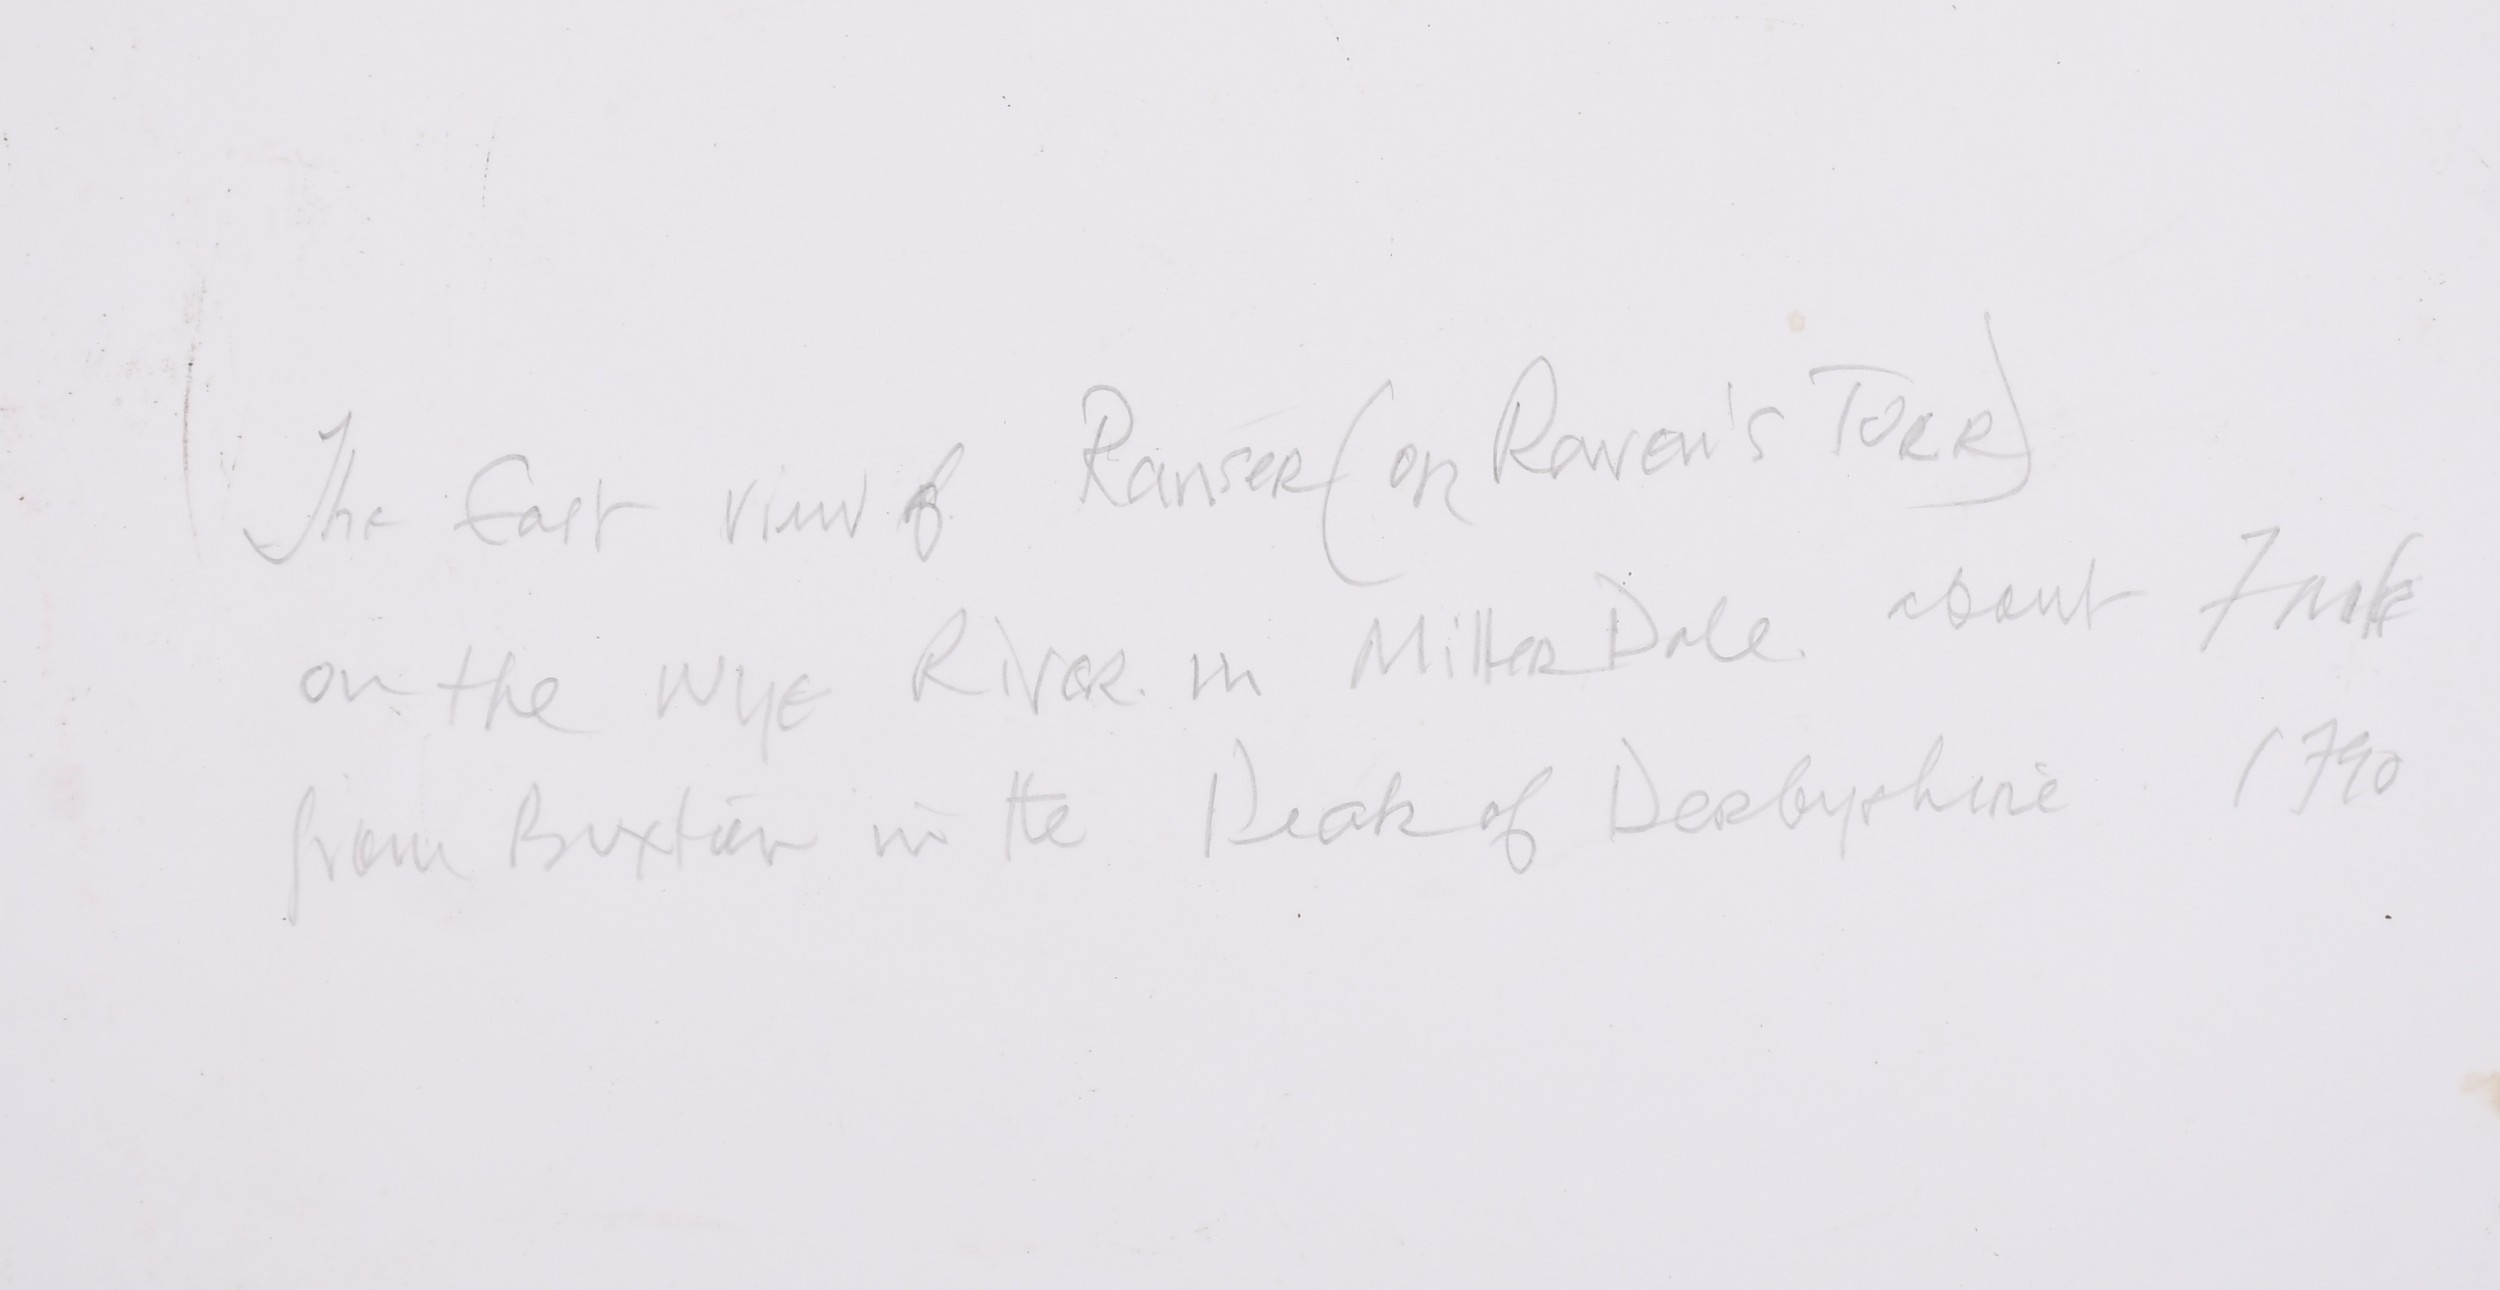 The East view of Ranser (or Raven's Torr)
on the Wye River in Miller Dale. about 7 mile
from Buxton in the Peak of Derbyshire 1790